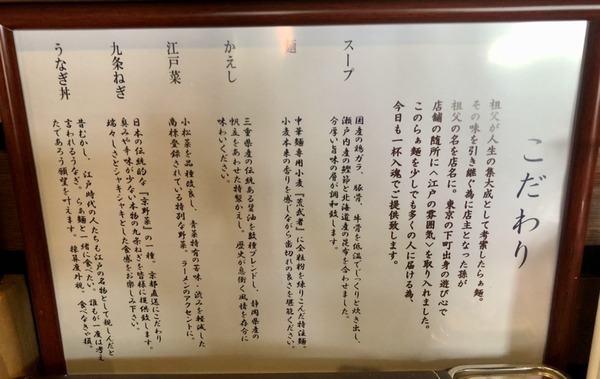 こだわり
祖父が人生の集大成として考案したらぁ麺。
その味を引き継ぐ為に店主となった孫が
祖父の名を店名に。東京の下町出身の遊び心で
店舗の随所に〈江戸の雰囲気〉を取り入れました。
このらぁ麺を少しでも多くの人に届ける為、
今日も一杯入魂でご提供致します。
スープ
国産の鶏ガラ、豚骨、牛骨を低温でじっくりと炊き出し、
瀬戸内産の鰹節と北海道産の昆布を合わせました。
分厚い旨味の層が調和致します。
麺
中華麺専用小麦『荒武者』に全粒粉を練りこんだ特注麺。
小麦本来の香りを感じながら歯切れの良さを堪能ください。
かえし
三重県産の伝統ある醤油を数種ブレンドし、静岡県産の
帆立をあわせた特製かえし。歴史が息衝く風情を存分に
味わいください。
江戸菜
小松菜を品種改良し、青菜特有の苦味・渋みを軽減した
商標登録されている特別な野菜。ラーメンのアクセントに。
九条ねぎ
日本の伝統的な『京野菜』の一種。京都直送にこだわり
臭みや辛味が少ない本物の九条ねぎを皆様に提供致します。
瑞々しさとシャキシャキとした食感をお楽しみ下さい。
うなぎ丼
昔むかし、江戸時代の人たちも江戸の名物として親しんだと
言われるうなぎ。らぁ麺と一緒に食べたい。誰もが一度は考え
たであろう願望を叶えます。採算度外視、食べなきゃ損。